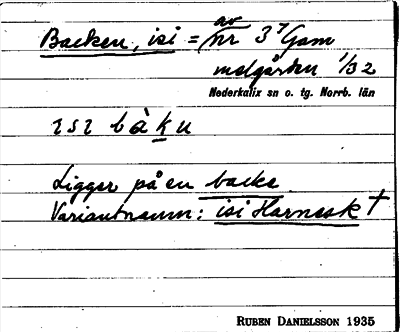 av
Backen, isi = nr 3⁷ Gam
melgården 1/32
Nederkalix sn o. tg. Norrb. län
ɪsɪ bàku
Ligger på en backe
Variantnamn: isi Harnesk †
RUBEN DANIELSSON 1935